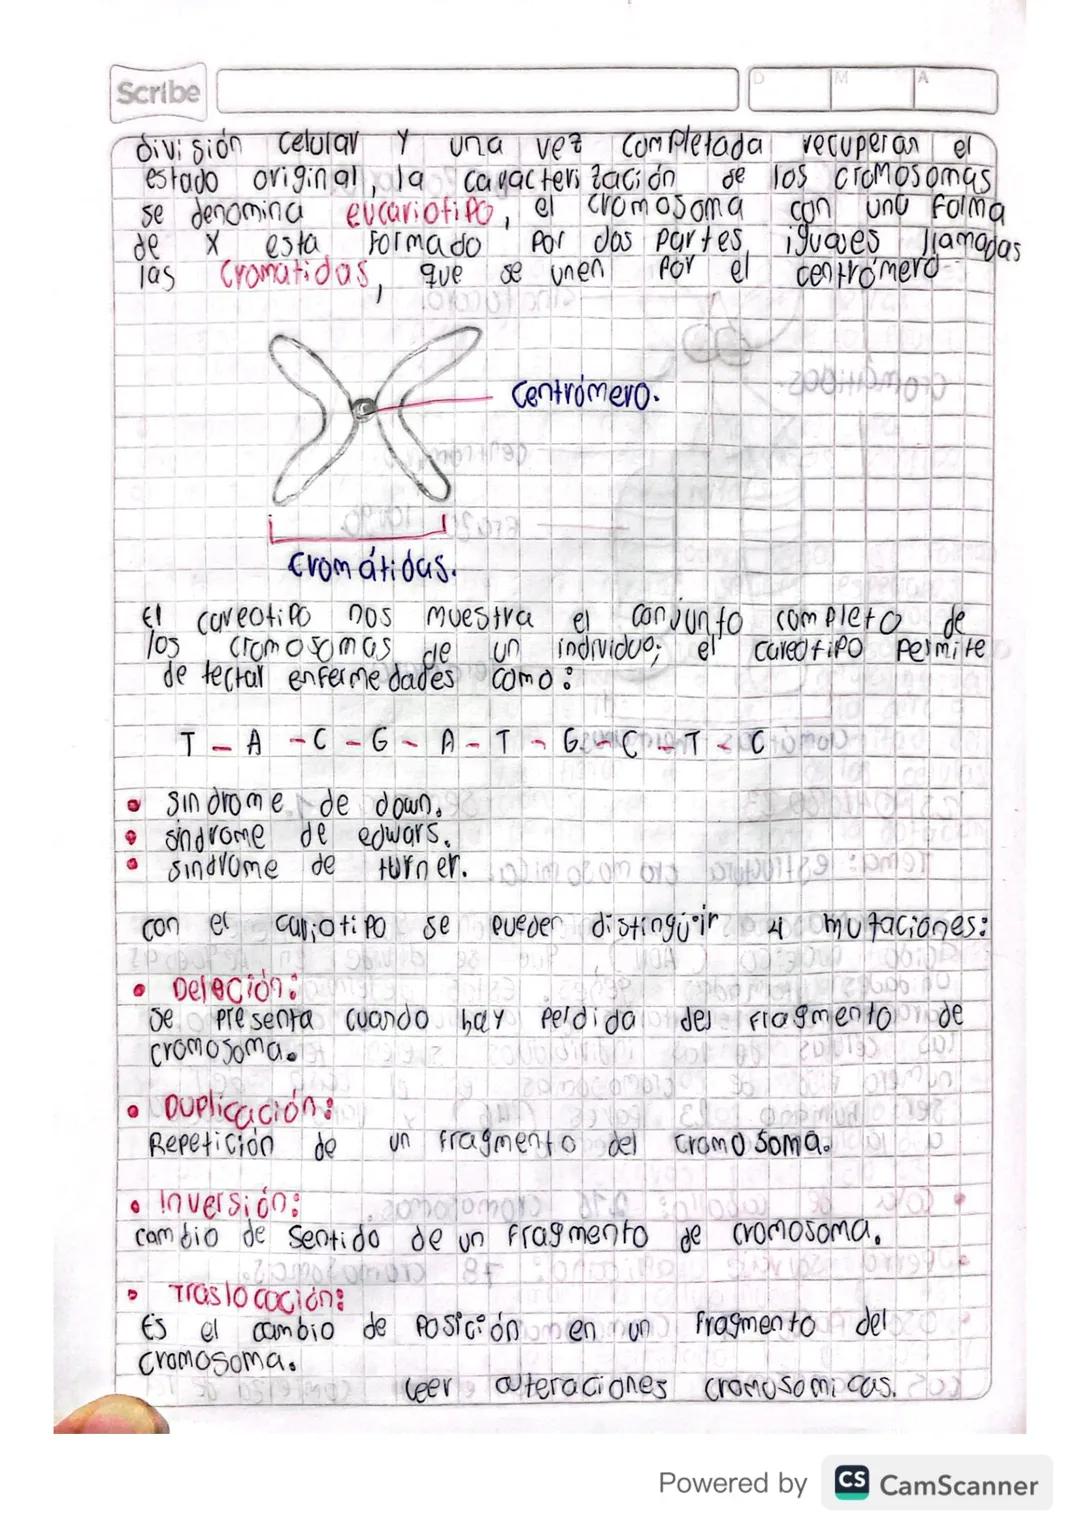 Scribe
D M A
división celular y una vez completada recuperan el
estado original, la caracterización de los cromosomas
se denomina eucariotipo, el cromosoma con una forma
de x esta formado por dos partes iguales llamadas
las cromatidas, que se unen por el centrómero
Centrómero.
Cromátidas.
El careotipo nos muestra el conjunto completo de
los cromosomas de un individuo; el careotipo permite
detectar enfermedades como:
T - A - C - G - A - T - G - C - T - C
• sindrome de down.
• sindrome de edwars.
• sindrome de turner.
con el cariotipo se pueden distinguir 4 mutaciones:
• Deleción:
se presenta cuando hay perdida del fragmento de
cromosoma.
• Duplicación:
Repetición de un fragmento del cromosoma.
• Inversión:
cambio de sentido de un fragmento de cromosoma.
• Traslocación:
Es el cambio de posición en un fragmento del
cromosoma.
Leer alteraciones cromosomicas.
Powered by CS CamScanner